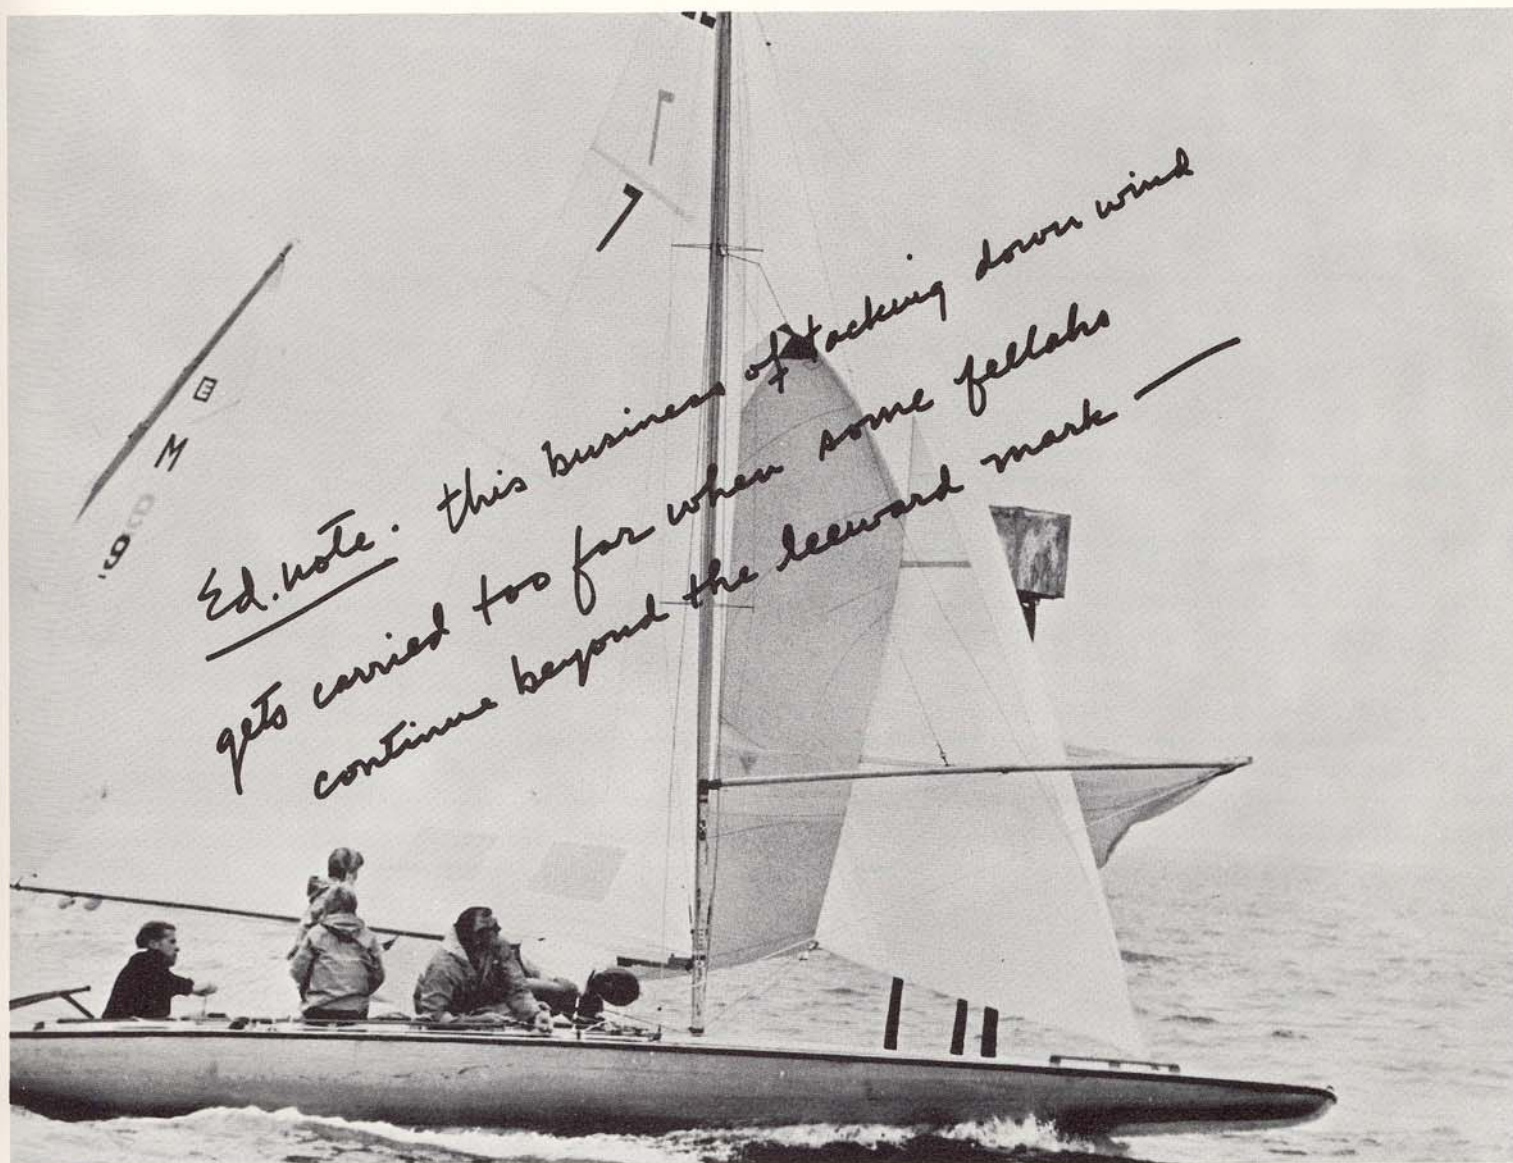 Ed. note. this business of tacking down wind
gets carried too far when some fellahs
continue beyond the leeward mark —